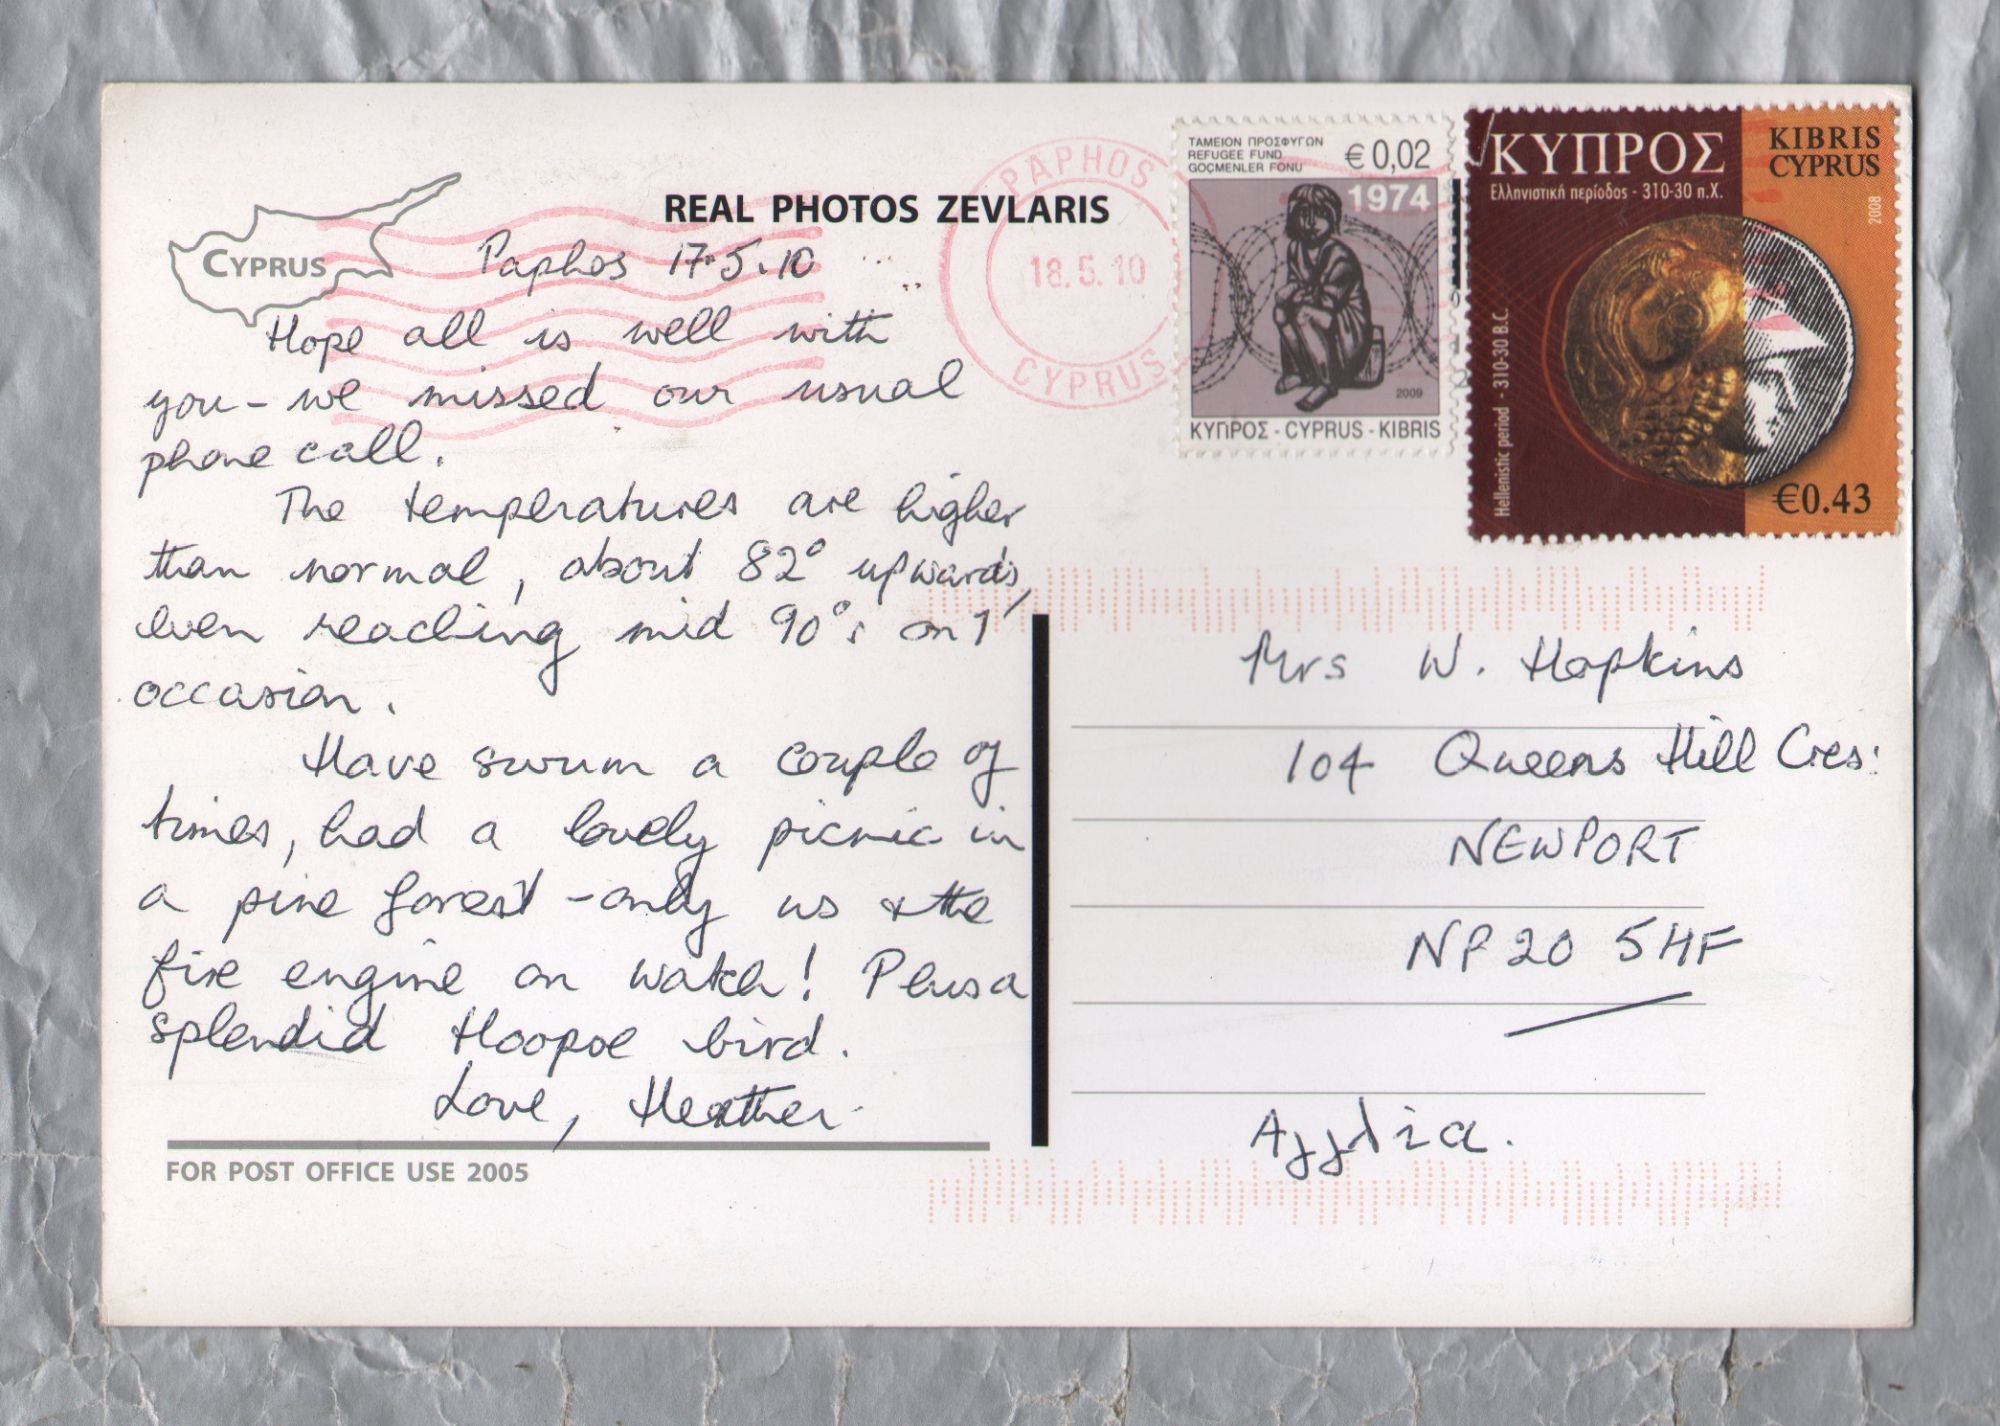 REAL PHOTOS ZEVLARIS
CYPRUS
Paphos 17.5.10
Hope all is well with
you - we missed our usual
phone call.
The temperatures are higher
than normal, about 82° upwards,
even reaching mid 90°s on 1
occasion.
Have swum a couple of
times, had a lovely picnic in
a pine forest - only us & the
fire engine on watch! Plus a
splendid Hoopoe bird.
Love, Heather.
FOR POST OFFICE USE 2005
PAPHOS
18.5.10
CYPRUS
ΤΑΜΕΙΟΝ ΠΡΟΣΦΥΓΩΝ
REFUGEE FUND
GÖÇMENLER FONU
€0,02
1974
2009
ΚΥΠΡΟΣ - CYPRUS - KIBRIS
ΚΥΠΡΟΣ
Ελληνιστική περίοδος - 310-30 π.Χ.
Hellenistic period - 310-30 B.C.
KIBRIS
CYPRUS
2008
€0.43
Mrs W. Hopkins
104 Queens Hill Cres:
NEWPORT
NP20 5HF
Αγγλία.